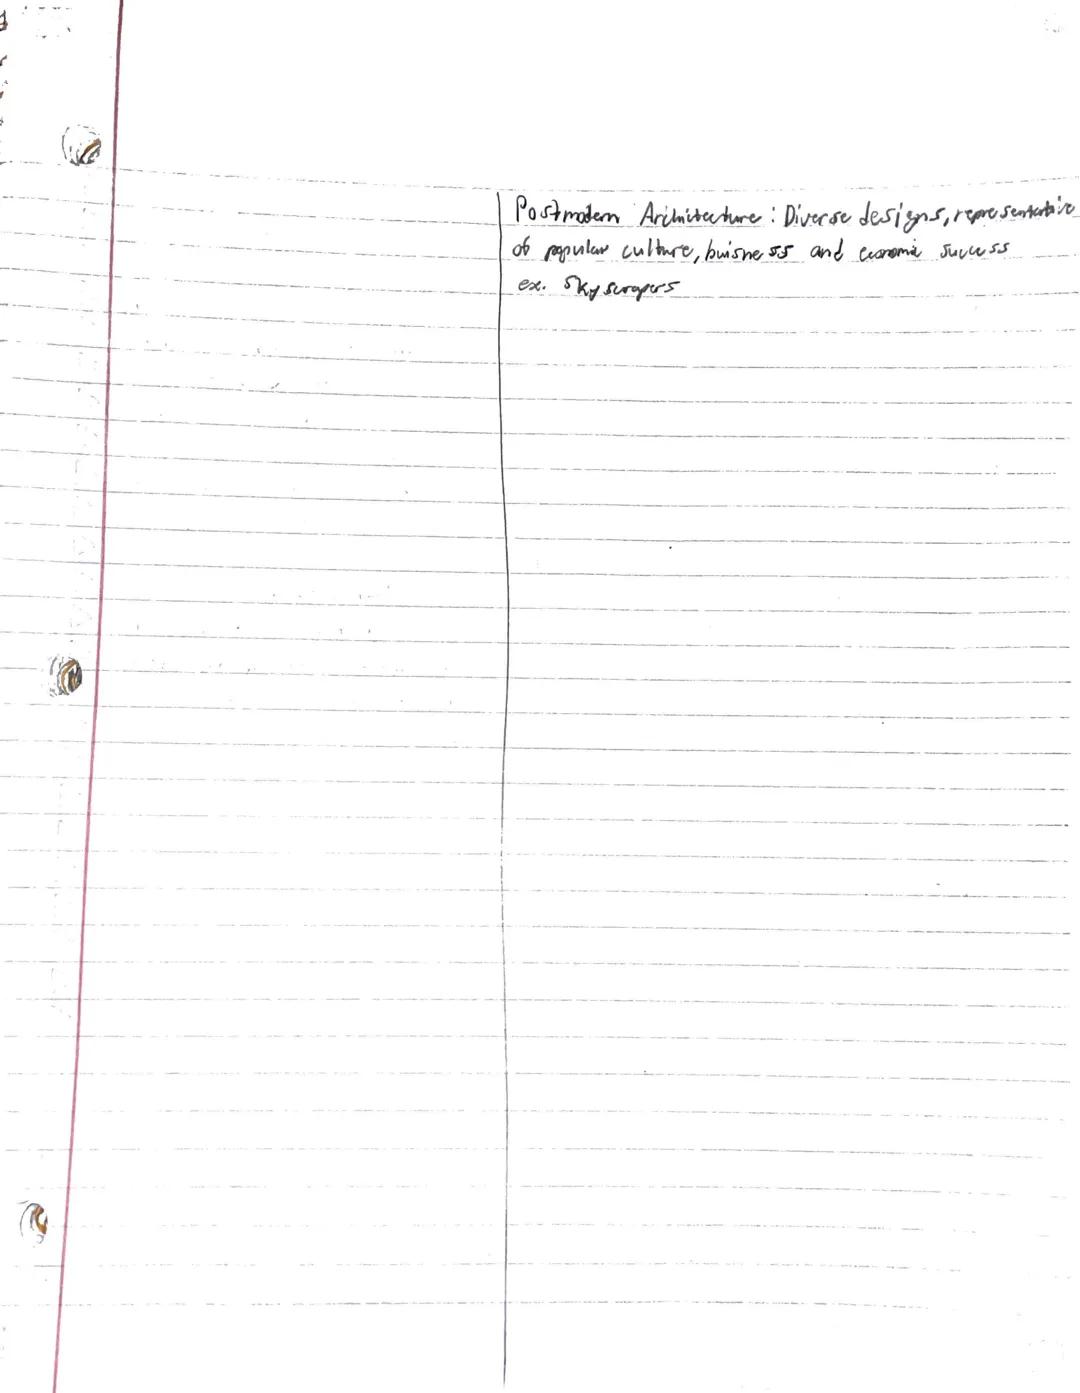 Postmodern Architecture : Diverse designs, representative
of popular culture, buisness and economic success
ex. Skyscrapers